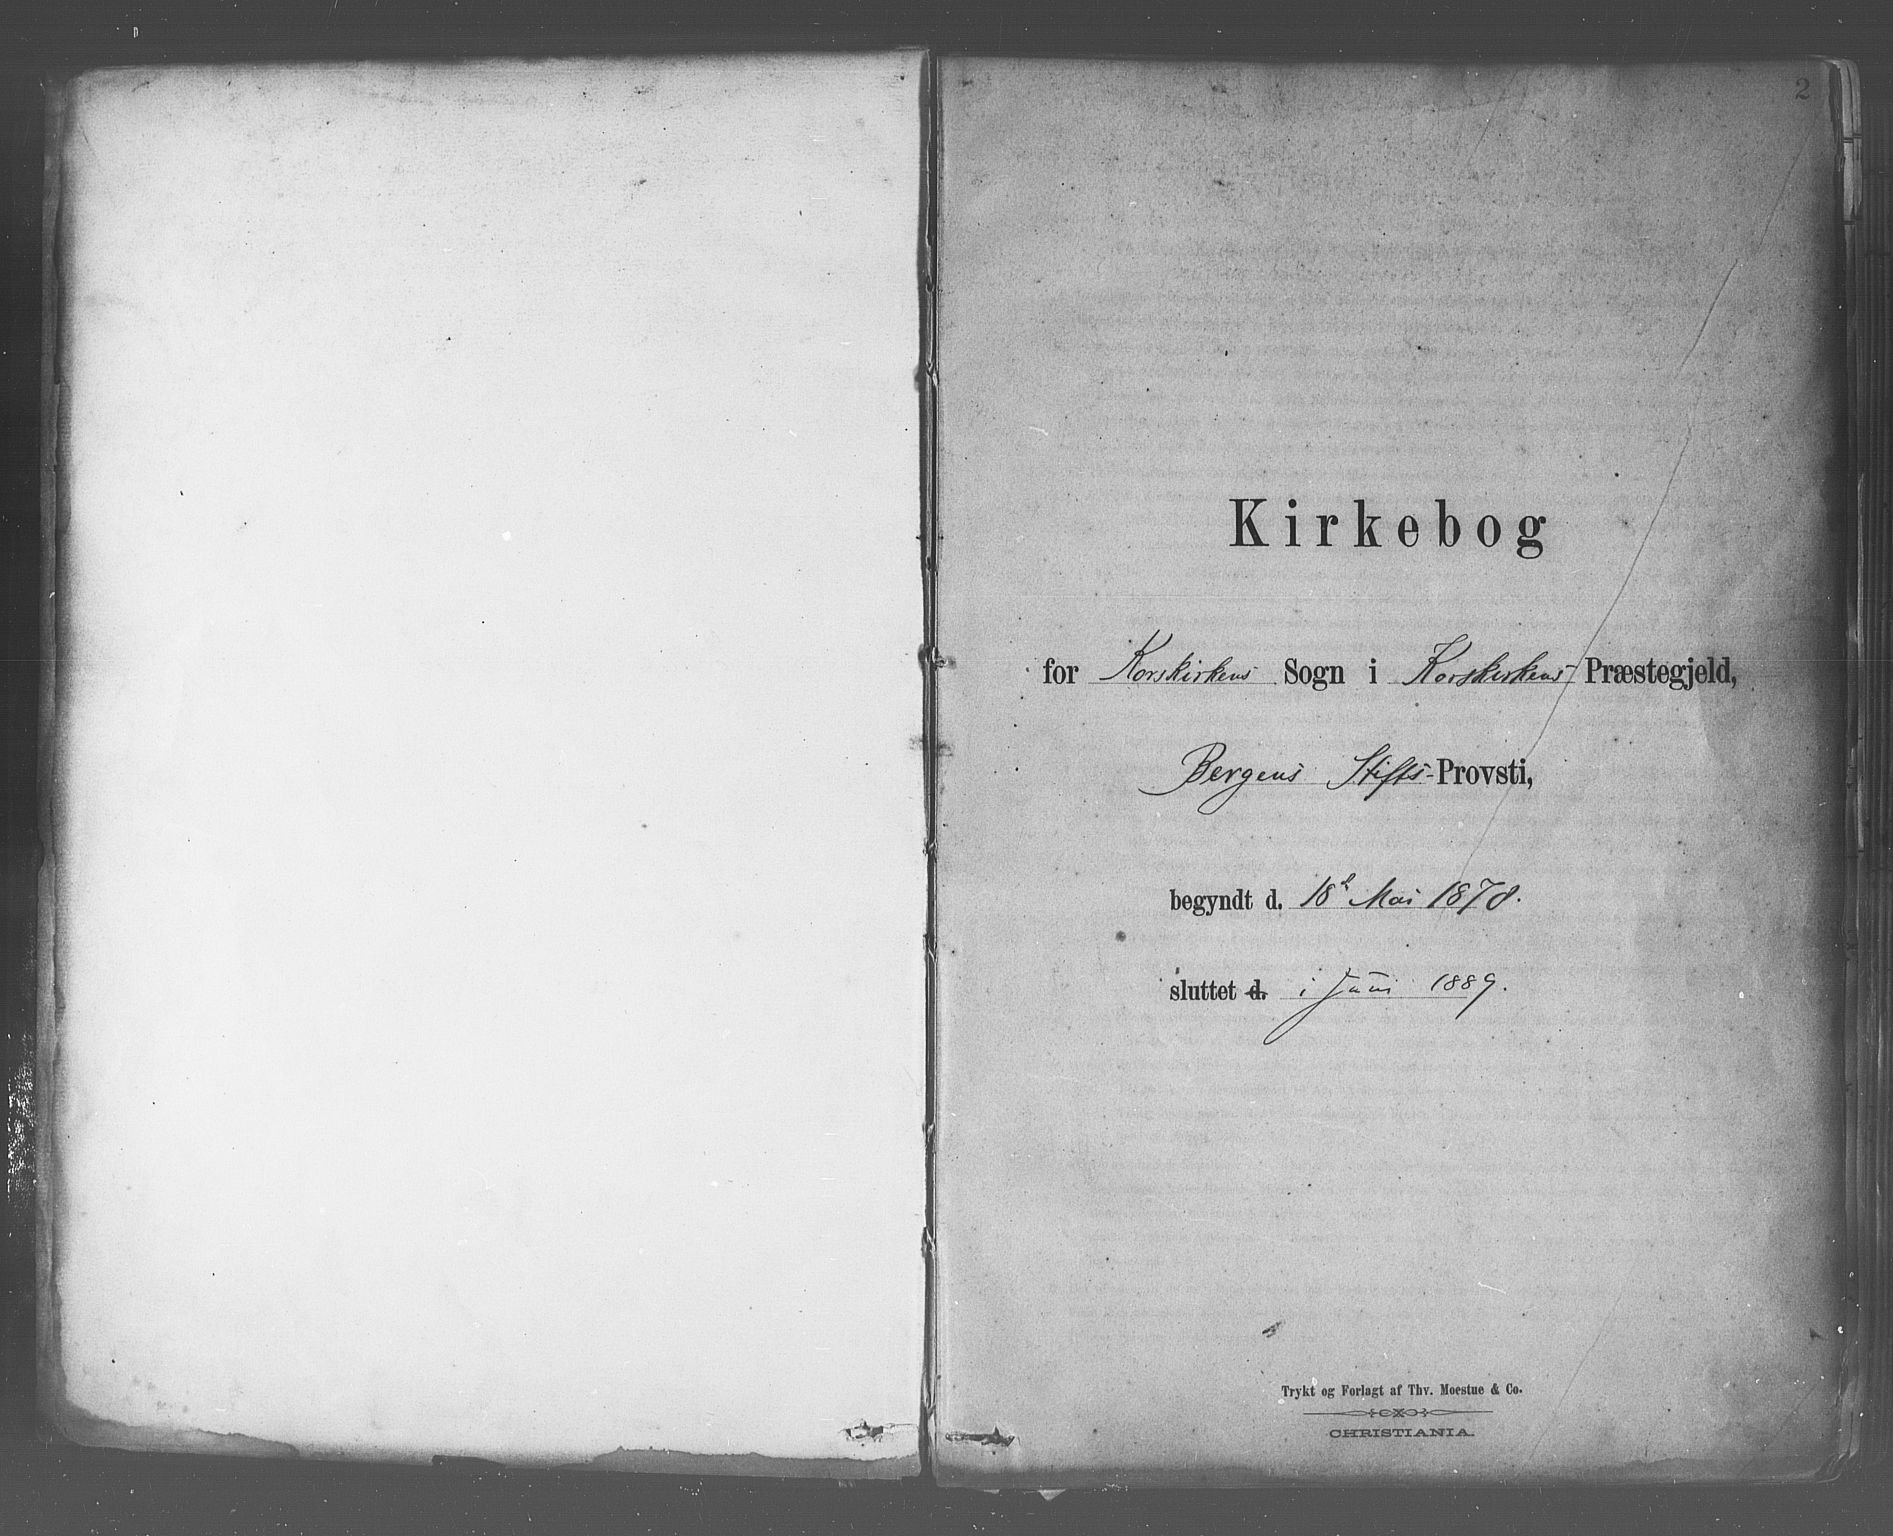 2
Kirkebog
for Korskirkens Sogn i Korskirkens Præstegjeld,
Bergens Stifts-Provsti,
begyndt d. 18d Mai 1878.
sluttet d. i Juni 1889.
Trykt og Forlagt af Thv. Moestue & Co.
CHRISTIANIA.